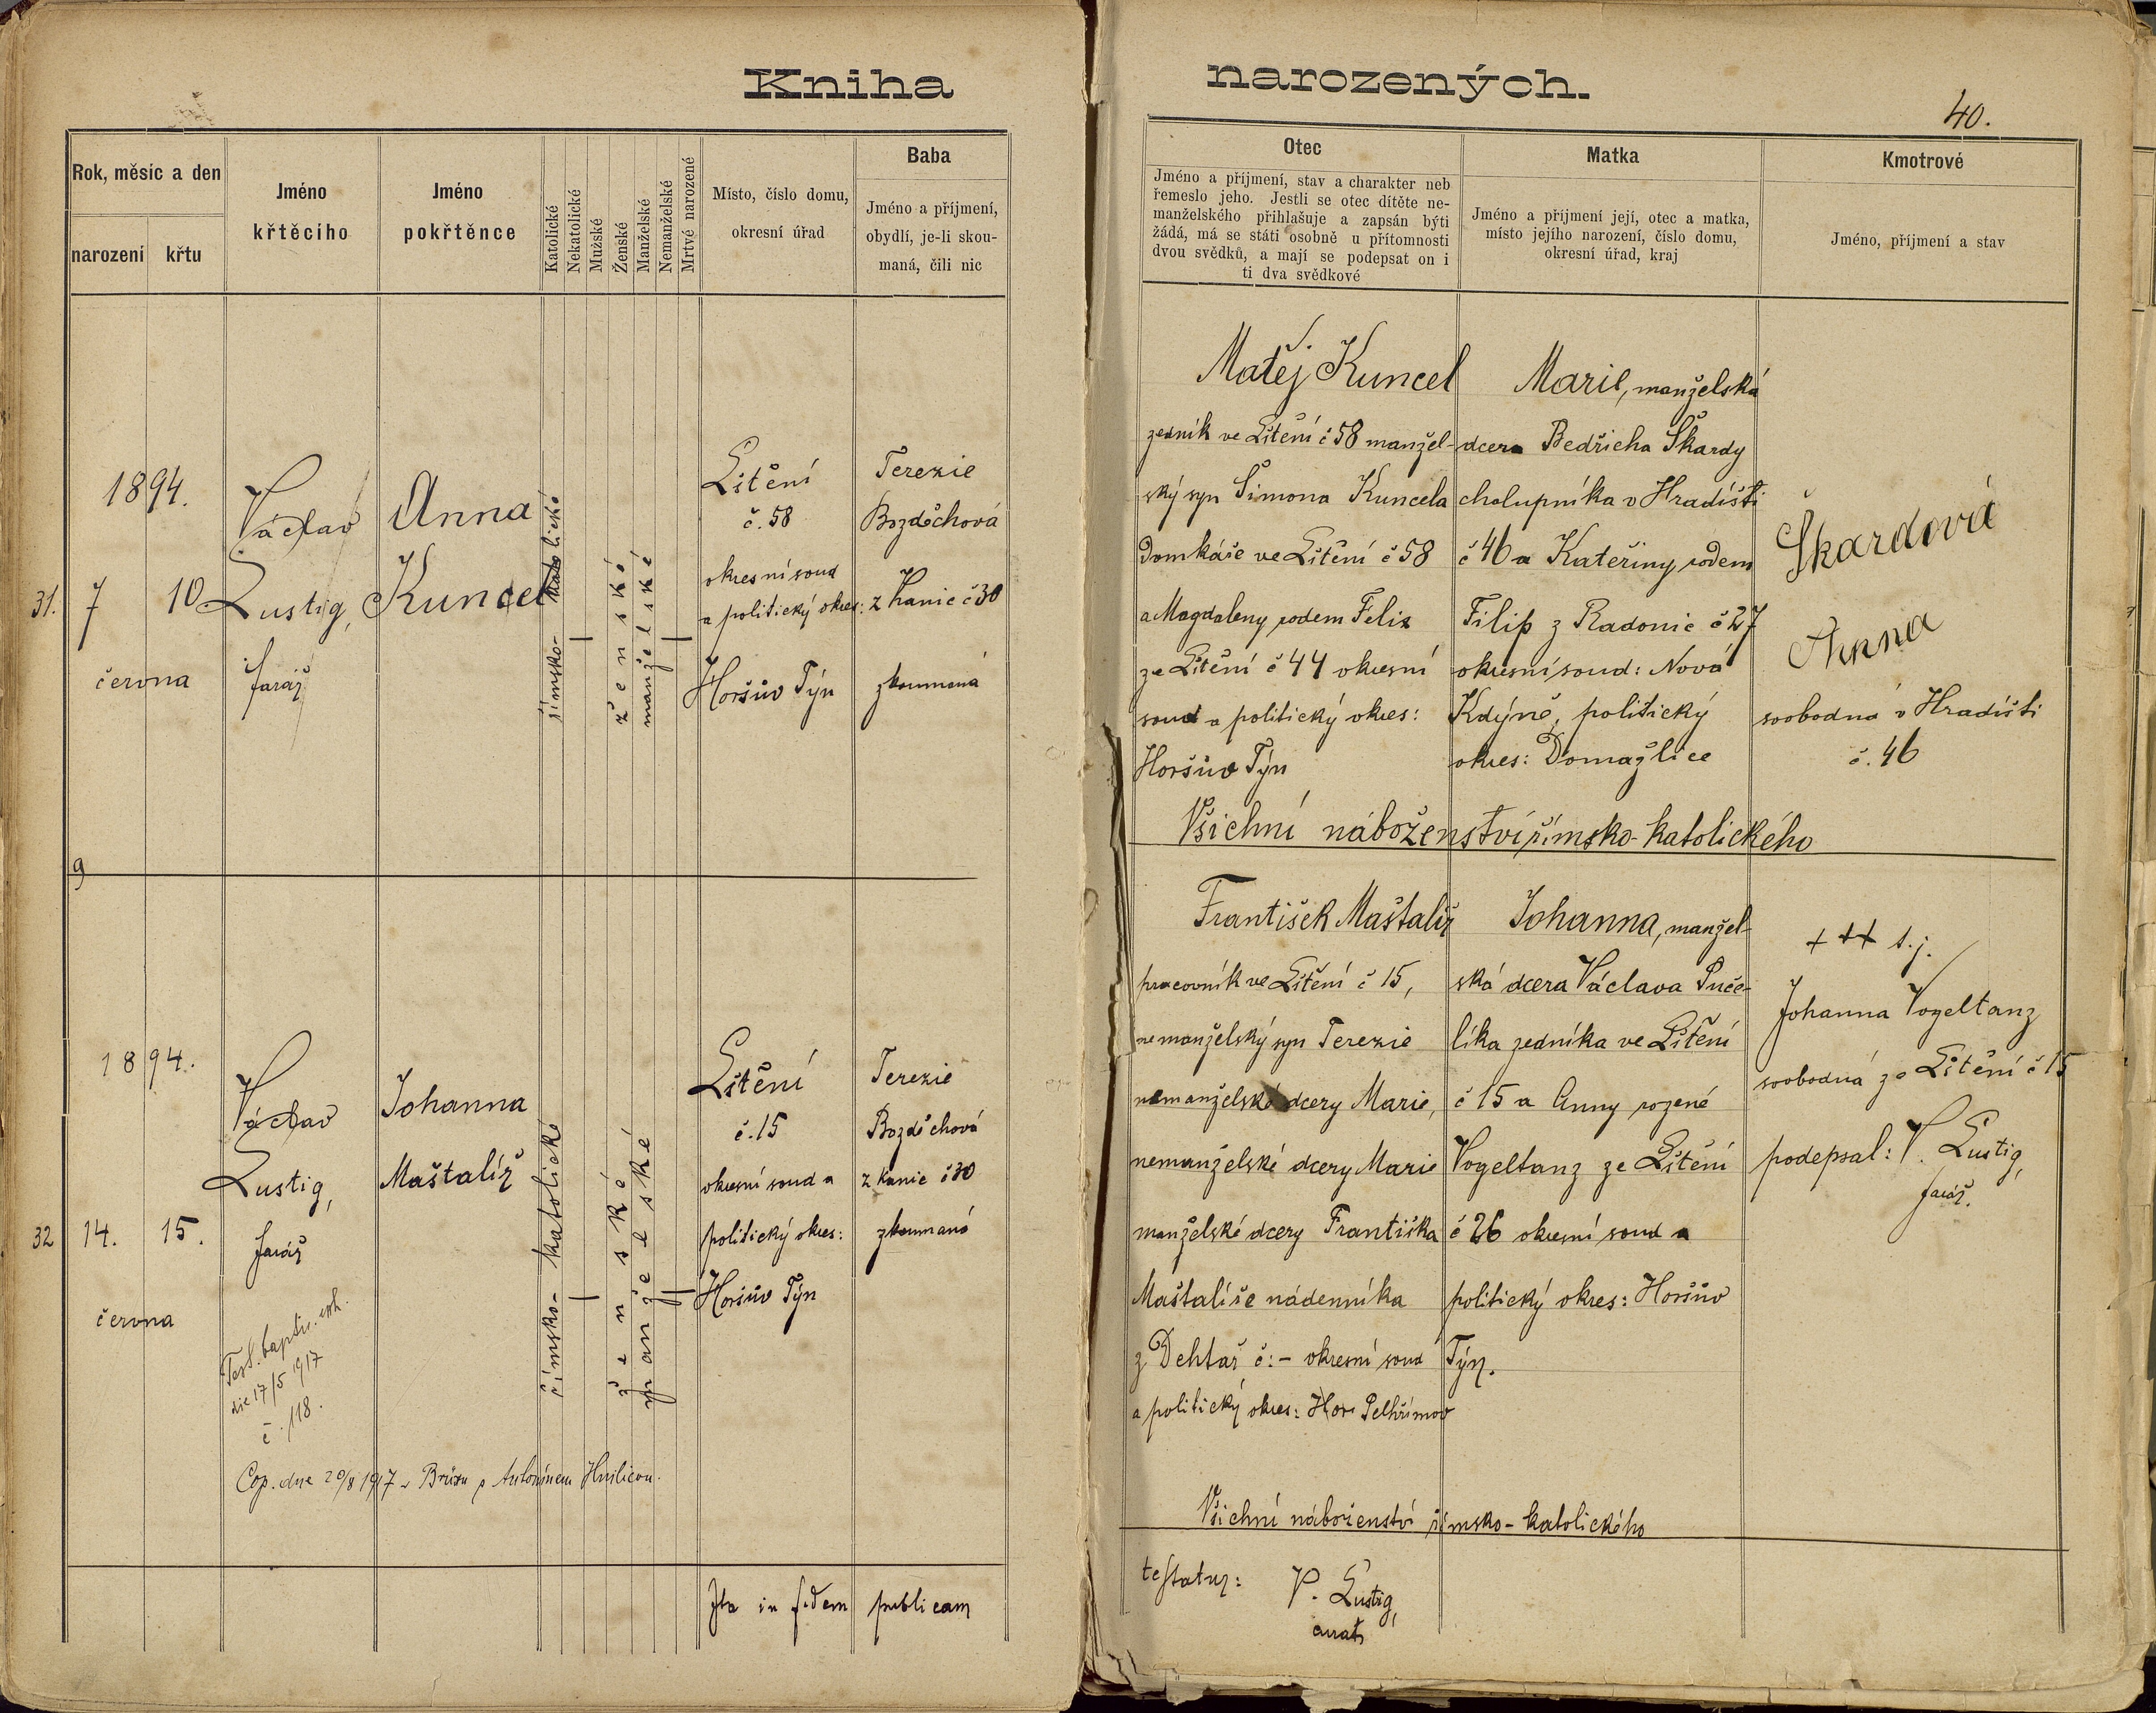 Kniha narozených.
40.
Rok, měsíc a den
narození
křtu
Jméno
křtěcího
Jméno
pokřtěnce
Katolické
Nekatolické
Mužské
Ženské
Manželské
Nemanželské
Mrtvé narozené
Místo, číslo domu,
okresní úřad
Baba
Jméno a příjmení,
obydlí, je-li skou-
maná, čili nic
Otec
Jméno a příjmení, stav a charakter neb
řemeslo jeho. Jestli se otec dítěte ne-
manželského přihlašuje a zapsán býti
žádá, má se státi osobně u přítomnosti
dvou svědků, a mají se podepsat on i
ti dva svědkové
Matka
Jméno a příjmení její, otec a matka,
místo jejího narození, číslo domu,
okresní úřad, kraj
Kmotrové
Jméno, příjmení a stav
31.
1894.
7
10
června
Václav
Lustig,
farář
Anna
Kuncel
římsko-katolické
ženské
manželské
Lštění
č. 58
okresní soud
a politický okres:
Horšův Týn
Terezie
Bozděchová
z Kanic č 30
zkoumaná
Matěj Kuncel
zedník ve Lštění č 58 manžel-
ský syn Šimona Kuncela
domkáře ve Lštění č 58
a Magdaleny rodem Felix
ze Lštění č 44 okresní
soud a politický okres:
Horšův Týn
Marie, manželská
dcera Bedřicha Škardy
chalupníka v Hradišti
č 46 a Kateřiny rodem
Filip z Radonic č 27
okresní soud: Nová
Kdýně, politický
okres: Domažlice
Škardová
Anna
svobodná v Hradišti
č. 46
Všichni náboženství římsko-katolického
9
32
1894.
14.
15.
června
Václav
Lustig,
farář
Test. baptis. exh.
die 17/5 1917
č. 118.
Johanna
Maštalíř
římsko-katolické
ženské
manželské
Lštění
č. 15
okresní soud a
politický okres:
Horšův Týn
Terezie
Bozděchová
z Kanic č 30
zkoumaná
Cop. dne 20/8 1917 v Brüxu s Antonínem Hnilicou.
František Maštalíř
pracovník ve Lštění č 15,
nemanželský syn Terezie
nemanželské dcery Marie,
nemanželské dcery Marie
manželské dcery Františka
Maštalíře nádenníka
z Dehtář č: - okresní soud
a politický okres: Hor Pelhřimov
Johanna, manžel-
ská dcera Václava Puče-
líka zedníka ve Lštění
č 15 a Anny rozené
Vogeltanz ze Lštění
č 26 okresní soud a
politický okres: Horšův
Týn.
+++ t.j.
Johanna Vogeltanz
svobodná ze Lštění č 15
podepsal: V. Lustig,
farář.
Všichni náboženství římsko-katolického
Ita in fidem publicam
testatur: V. Lustig,
curat